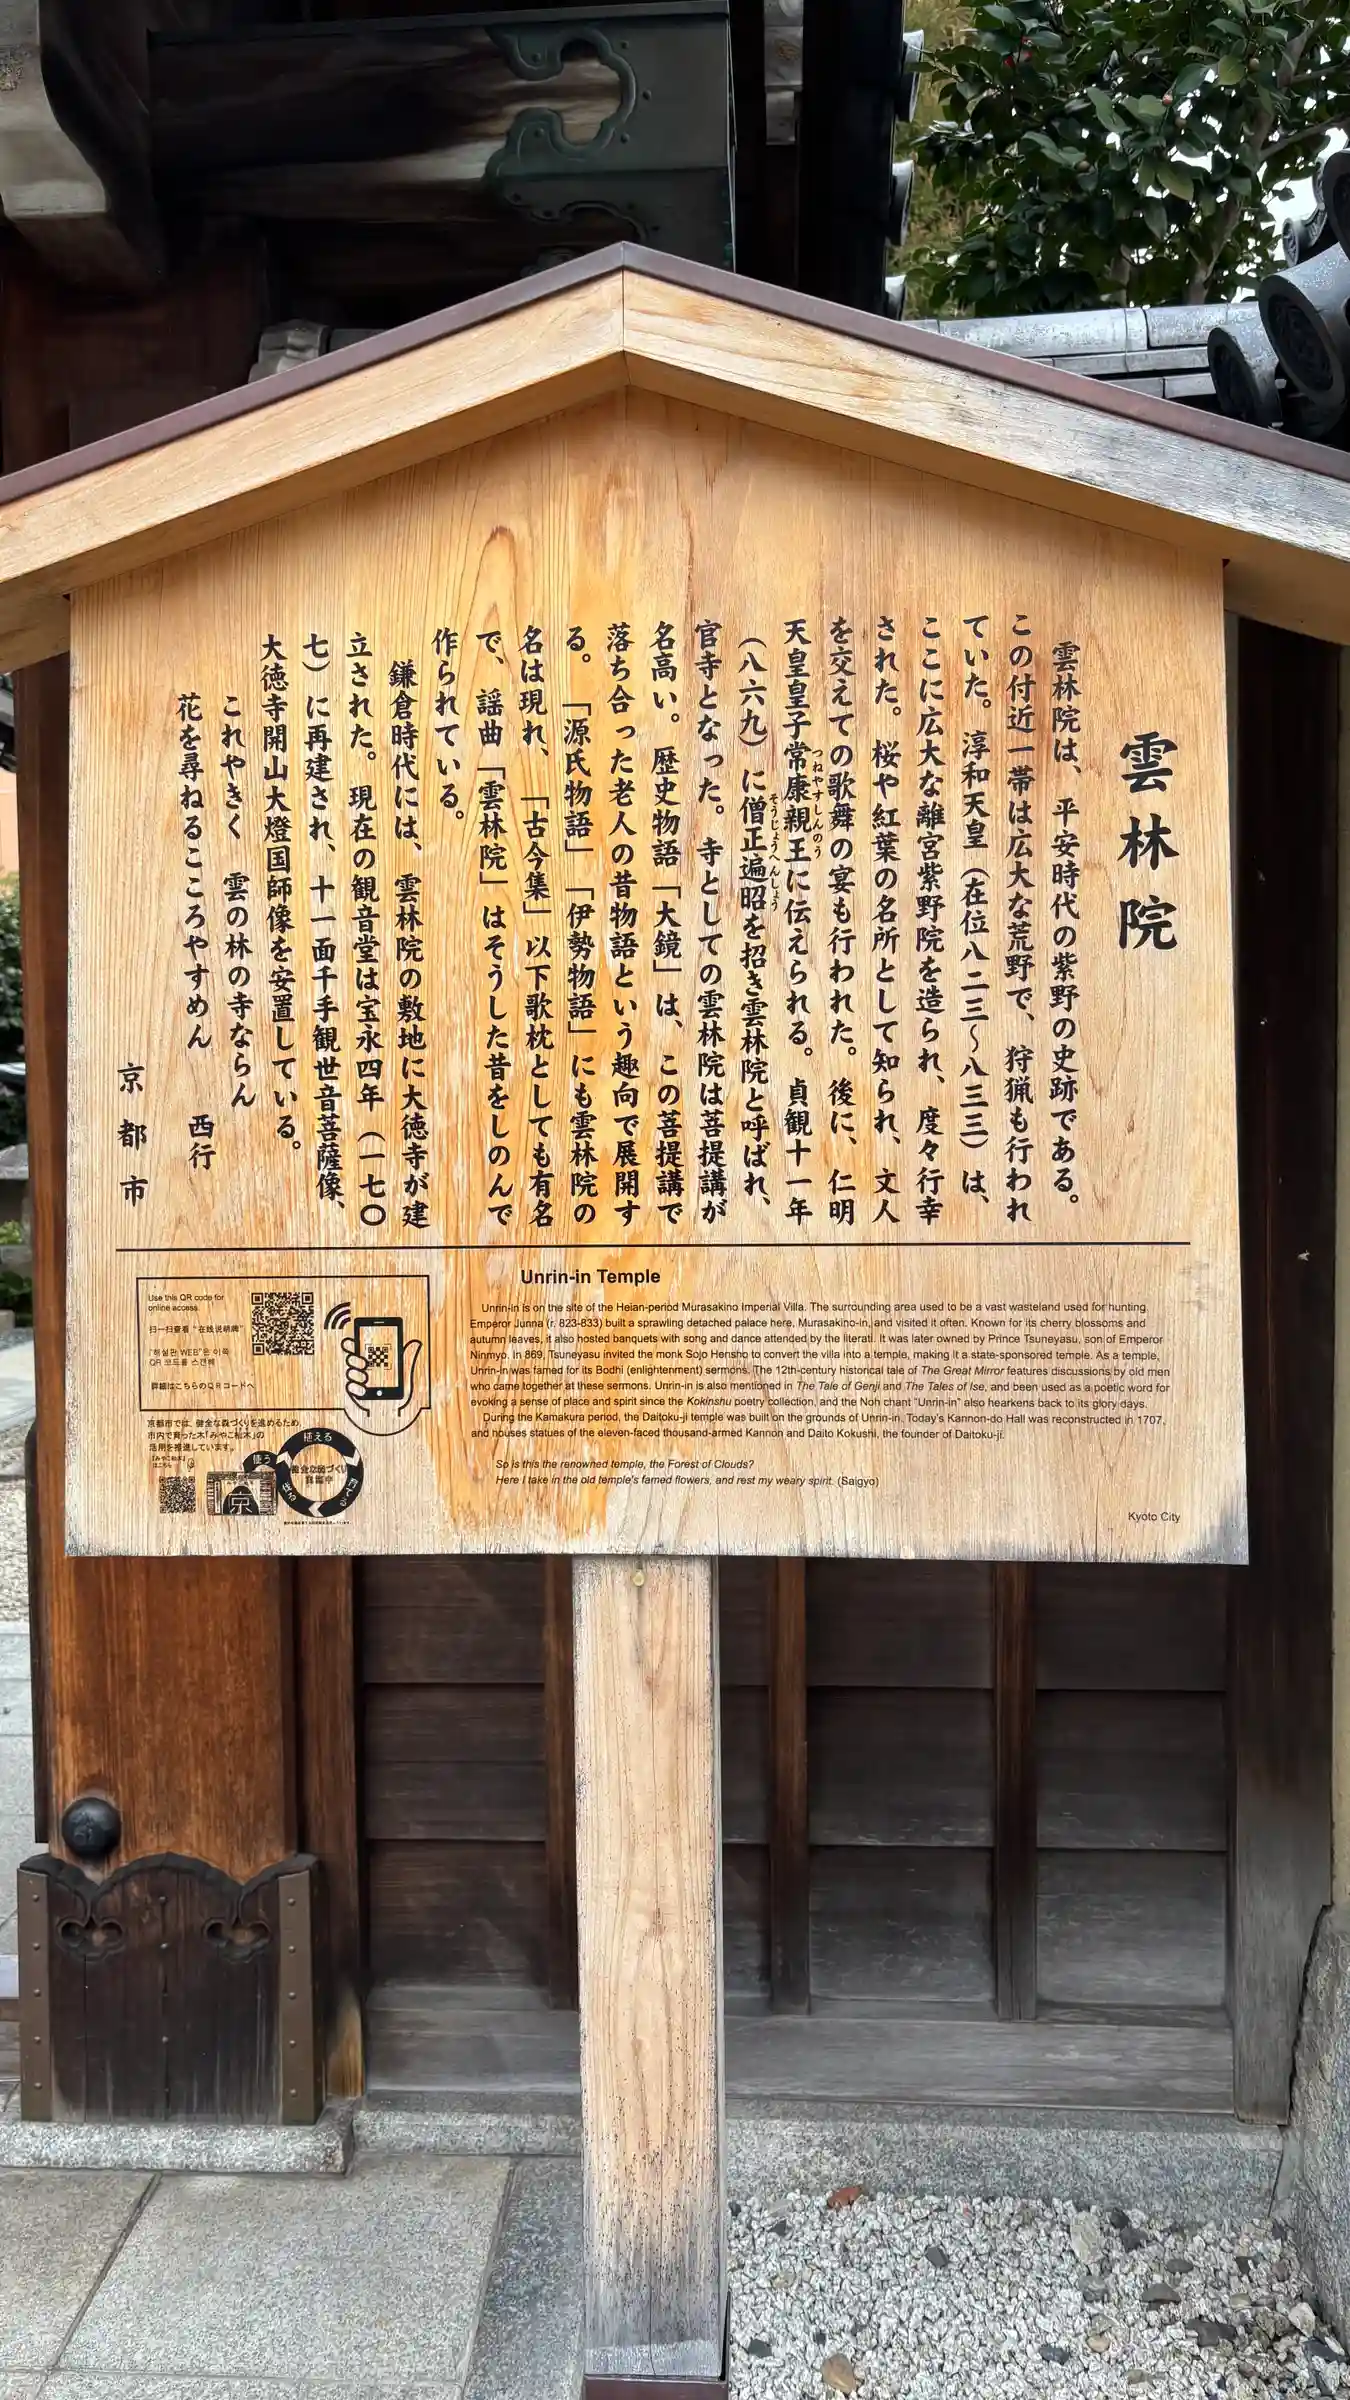 雲林院
雲林院は、平安時代の紫野の史跡である。
この付近一帯は広大な荒野で、狩猟も行われ
ていた。淳和天皇（在位八二三〜八三三）は、
ここに広大な離宮紫野院を造られ、度々行幸
された。桜や紅葉の名所として知られ、文人
を交えての歌舞の宴も行われた。後に、仁明
天皇皇子常康親王に伝えられる。貞観十一年
つねやすしんのう
（八六九）に僧正遍昭を招き雲林院と呼ばれ、
そうじょうへんしょう
官寺となった。寺としての雲林院は菩提講が
名高い。歴史物語「大鏡」は、この菩提講で
落ち合った老人の昔物語という趣向で展開す
る。「源氏物語」「伊勢物語」にも雲林院の
名は現れ、「古今集」以下歌枕としても有名
で、謡曲「雲林院」はそうした昔をしのんで
作られている。
鎌倉時代には、雲林院の敷地に大徳寺が建
立された。現在の観音堂は宝永四年（一七〇
七）に再建され、十一面千手観世音菩薩像、
大徳寺開山大燈国師像を安置している。
これやきく　雲の林の寺ならん
花を尋ねるこころやすめん　西行
京都市
Unrin-in Temple
Unrin-in is on the site of the Heian-period Murasakino Imperial Villa. The surrounding area used to be a vast wasteland used for hunting.
Emperor Junna (r. 823-833) built a sprawling detached palace here, Murasakino-in, and visited it often. Known for its cherry blossoms and
autumn leaves, it also hosted banquets with song and dance attended by the literati. It was later owned by Prince Tsuneyasu, son of Emperor
Ninmyo. In 869, Tsuneyasu invited the monk Sojo Hensho to convert the villa into a temple, making it a state-sponsored temple. As a temple,
Unrin-in was famed for its Bodhi (enlightenment) sermons. The 12th-century historical tale of The Great Mirror features discussions by old men
who came together at these sermons. Unrin-in is also mentioned in The Tale of Genji and The Tales of Ise, and been used as a poetic word for
evoking a sense of place and spirit since the Kokinshu poetry collection, and the Noh chant "Unrin-in" also hearkens back to its glory days.
During the Kamakura period, the Daitoku-ji temple was built on the grounds of Unrin-in. Today's Kannon-do Hall was reconstructed in 1707,
and houses statues of the eleven-faced thousand-armed Kannon and Daito Kokushi, the founder of Daitoku-ji.
So is this the renowned temple, the Forest of Clouds?
Here I take in the old temple's famed flowers, and rest my weary spirit. (Saigyo)
Kyoto City
Use this QR code for
online access.
扫一扫查看 "在线说明牌"
"해설판 WEB"은 이쪽
QR 코드를 스캔해
詳細はこちらのQRコードへ
京都市では、健全な森づくりを進めるため、
市内で育った木「みやこ杣木」の
活用を推進しています。
「みやこ杣木」
はこちら
使う
植える
育てる
京